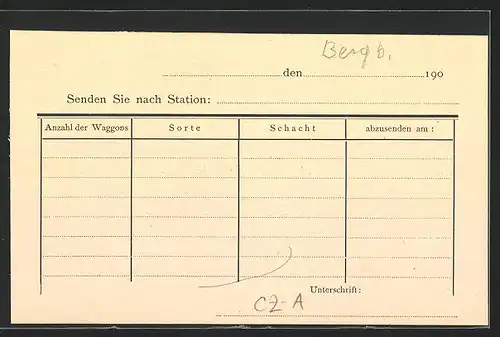 Berg b.
den 190
Senden Sie nach Station:
Anzahl der Waggons Sorte Schacht abzusenden am:
Unterschrift:
CZ-A